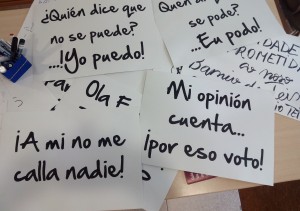 ¿Quién dice que
no se puede?
...!Yo puedo!
se pode?
...Eu podo!
DADE
ROMETID
Ola F
Mi opinión
cuenta...
¡por eso voto!
¡A mi no me
calla nadie!